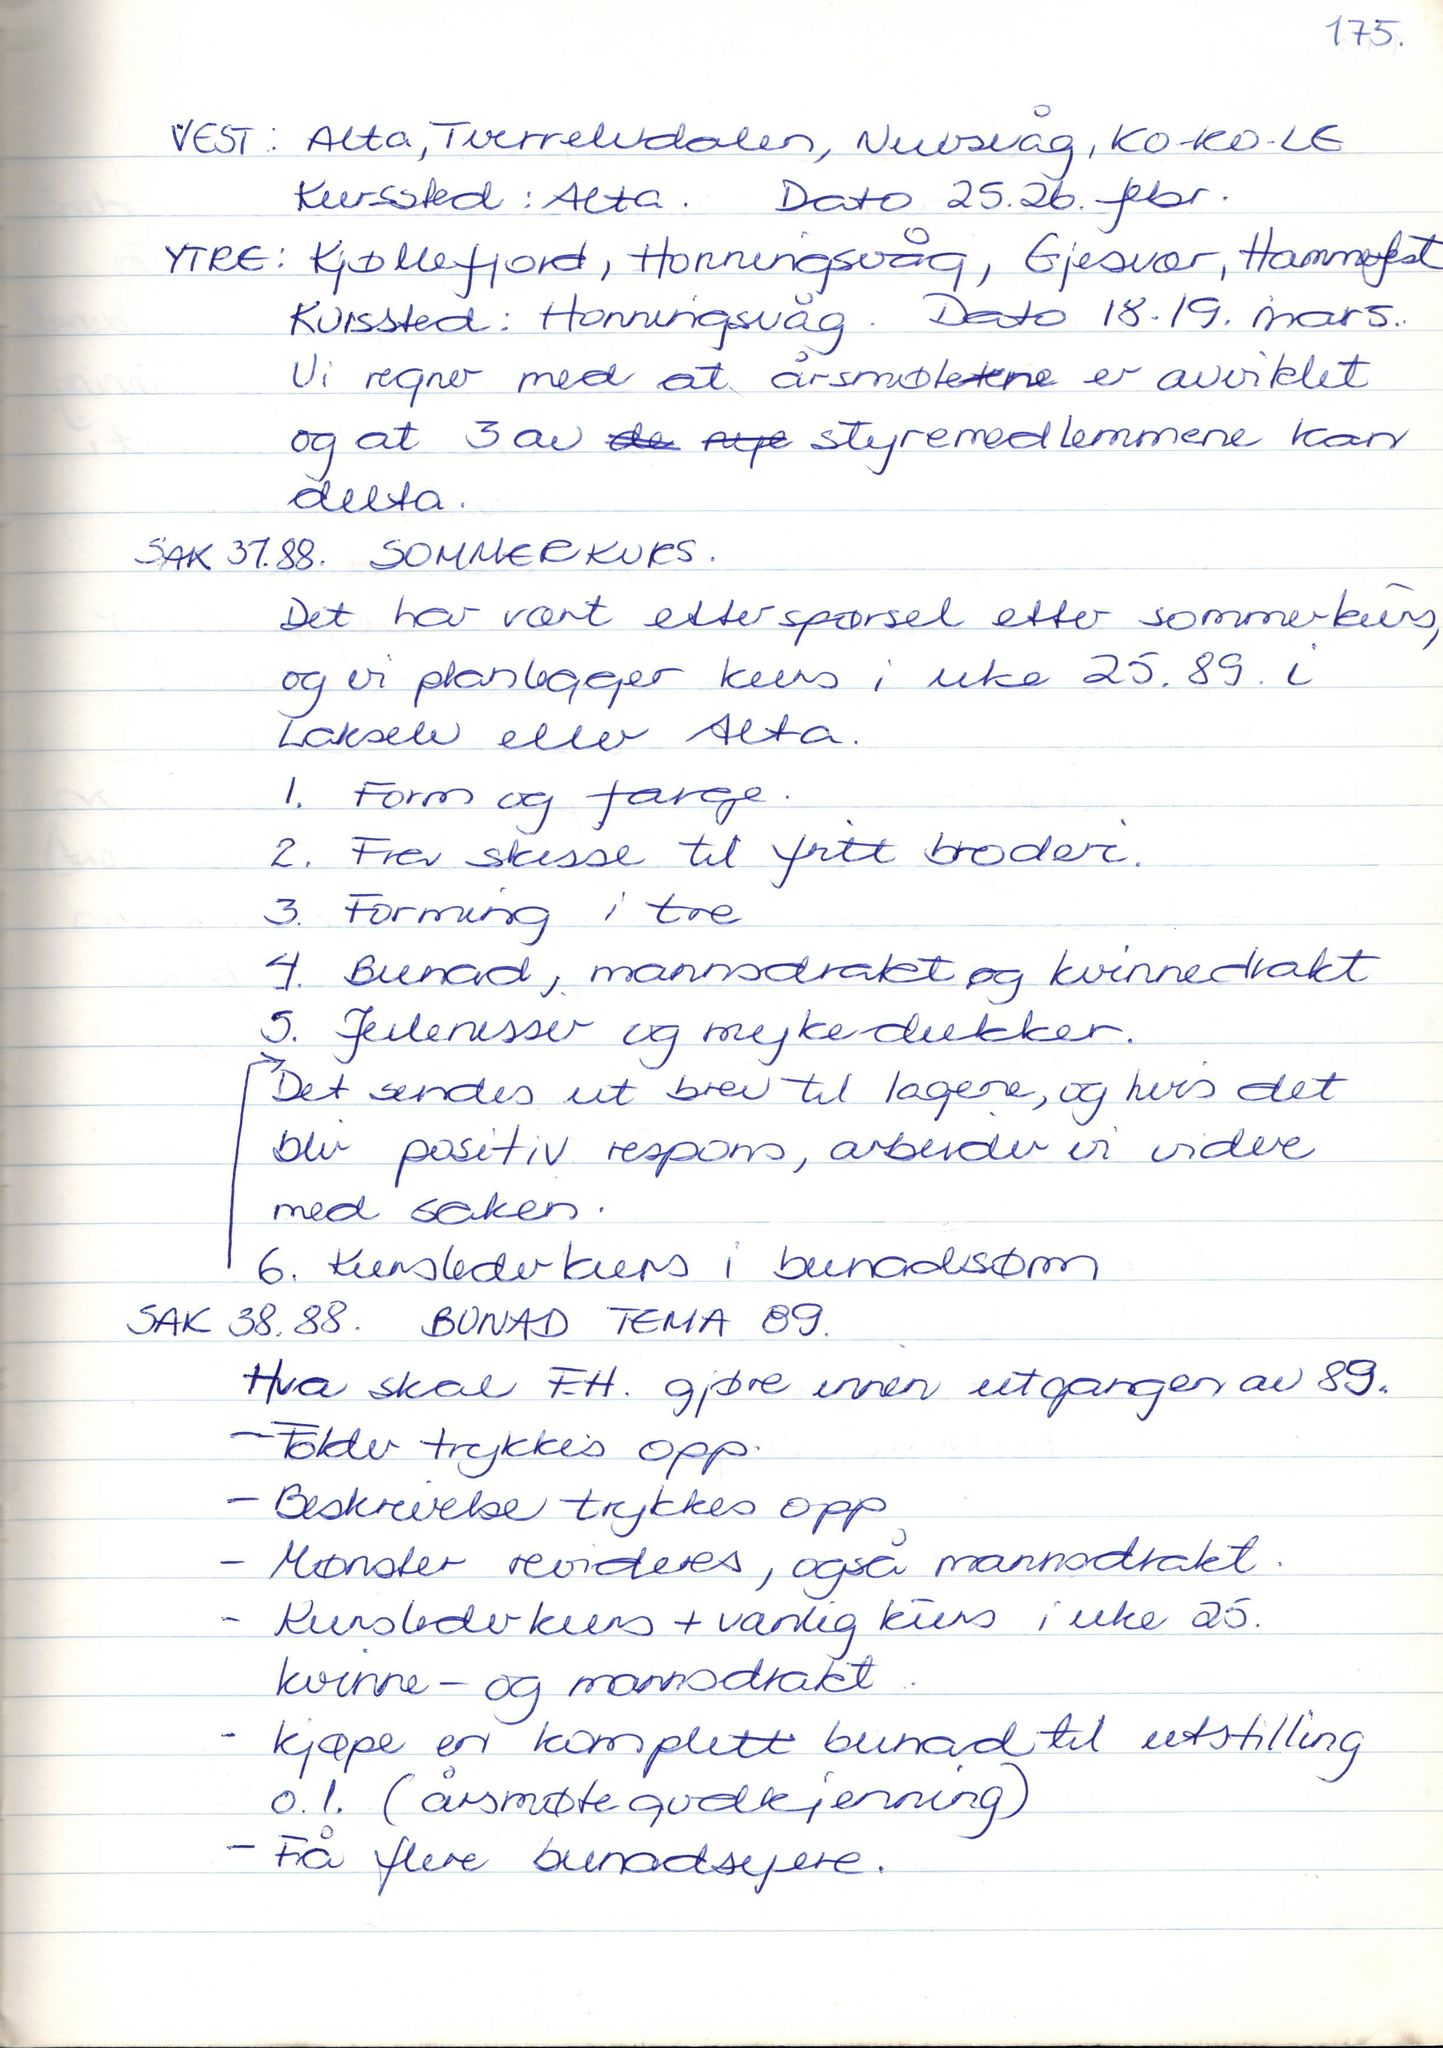 175.
VEST: Alta, Tverrelvdalen, Nuvsvåg, KO-KO-LE
Kurssted: Alta. Dato 25.26. febr.
YTRE: Kjøllefjord, Honningsvåg, Gjesvær, Hammerfest
Kurssted: Honningsvåg. Dato 18.19. mars.
Vi regner med at årsmøtetene er avviklet
og at 3 av de nye styremedlemmene kan
delta.
SAK 37.88. SOMMERKURS.
Det har vært etterspørsel etter sommerkurs,
og vi planlegger kurs i uke 25.89. i
Lakselv eller Alta.
1. Form og farge.
2. Frev skisse til fritt broderi.
3. Forming i tre
4. Bunad, mannsdrakt og kvinnedrakt
5. Julenisser og myke dukker.
Det sendes ut brev til lagene, og hvis det
blir positiv respons, arbeider vi videre
med saken.
6. Kurslederkurs i bunadsøm
SAK 38.88. BUNAD TEMA 89.
Hva skal F.H. gjøre innen utgangen av 89.
- Folder trykkes opp.
- Beskrivelse trykkes opp
- Mønster revideres, også mannsdrakt.
- Kurslederkurs + vanlig kurs i uke 25.
kvinne- og mannsdrakt.
- kjøpe en komplett bunad til utstilling
o.l. (årsmøtegodkjenning)
- Få flere bunadsyere.